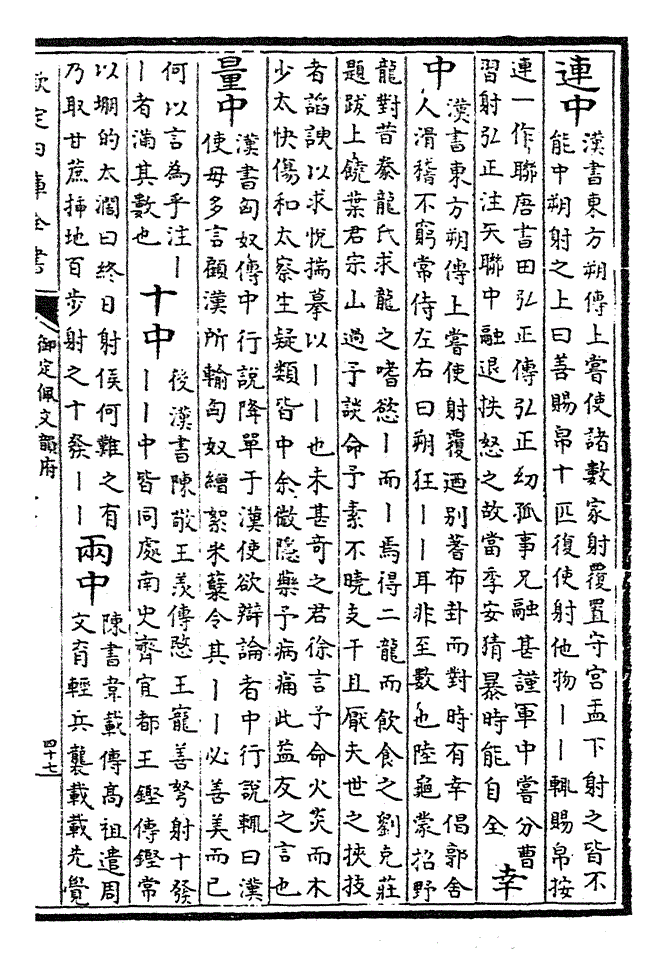 連中 漢書東方朔傳上嘗使諸數家射覆置守宮盂下射之皆不
能中朔射之上曰善賜帛十匹復使射他物丨丨輒賜帛按
連一作聯唐書田弘正傳弘正幼孤事兄融甚謹軍中嘗分曹
習射弘正注矢聯中融退抶怒之故當季安猜暴時能自全 幸
中 漢書東方朔傳上嘗使射覆廼別蓍布卦而對時有幸倡郭舍
人滑稽不窮常侍左右曰朔狂丨丨耳非至數也陸龜蒙招野
龍對昔豢龍氏求龍之嗜慾丨而丨焉得二龍而飲食之劉克莊
題跋上饒葉君宗山過予談命予素不曉支干且厭夫世之挾技
者諂諛以求悅揣摹以丨丨也未甚奇之君徐言予命火炎而木
少太快傷和太察生疑類皆中余微隱藥予病痛此益友之言也
量中 漢書匈奴傳中行說降單于漢使欲辯論者中行說輒曰漢
使毋多言顧漢所輸匈奴繒絮米糵令其丨丨必善美而已
何以言為乎注丨
丨者滿其數也 十中 後漢書陳敬王羨傳愍王寵善弩射十發
丨丨中皆同處南史齊宜都王鏗傳鏗常
以堋的太濶曰終日射侯何難之有
乃取甘蔗揷地百步射之十發丨丨 兩中 陳書韋載傳高祖遣周
文育輕兵襲載載先覺
欽定四庫全書
御定佩文韻府
四十七